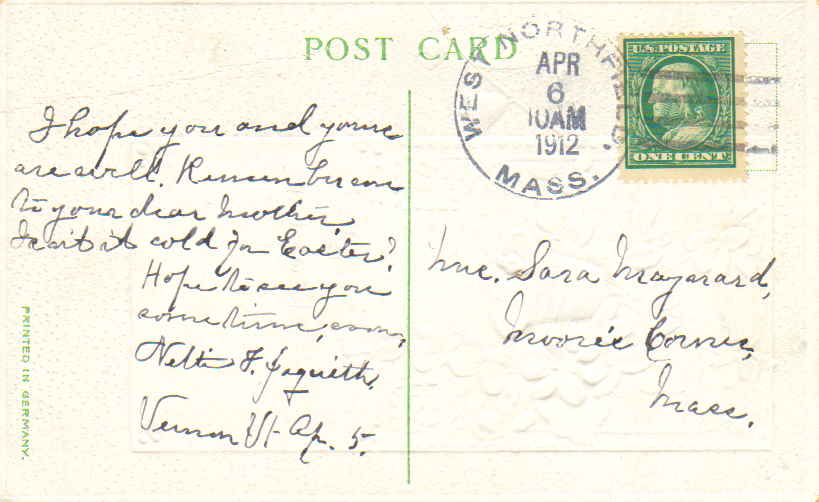 POST CARD
WEST NORTHFIELD.
APR
6
10AM
1912
MASS.
U.S. POSTAGE
ONE CENT
I hope you and yours
are well. Remember me
to your dear Mother.
Isn't it cold for Easter?
Hope to see you
some time soon,
Nettie F. Jaquith.
Vernon Vt Ap. 5.
Mrs. Sara Maynard,
Moore's Corner,
Mass.
PRINTED IN GERMANY.